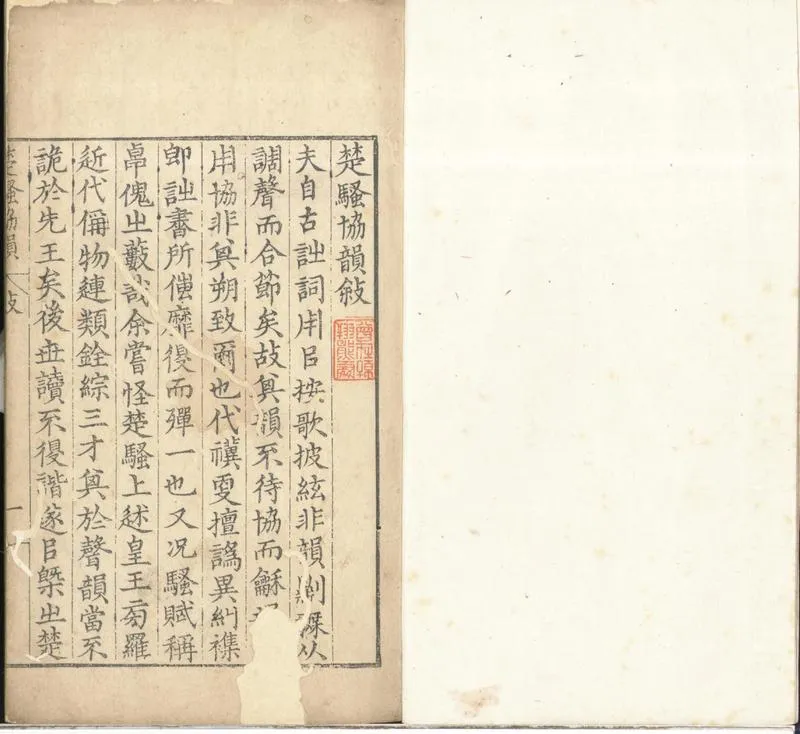 楚騷協韻敘
夫自古詘詞用㠯按歌披絃非韻以
調聲而合節矣故其韻不待協而龢
用協非其朔致爾也代禩㪅擅譌異糾襍
即詘書所靡復而殫一也又况騷賦稱
帛傀㞢藪哉余嘗怪楚騷上述皇王㫄羅
近代偁物連類銓綜三才其於聲韻當不
詭於先王矣後丗讀不復諧遂㠯槩㞢楚
楚騷協韻 敍 一